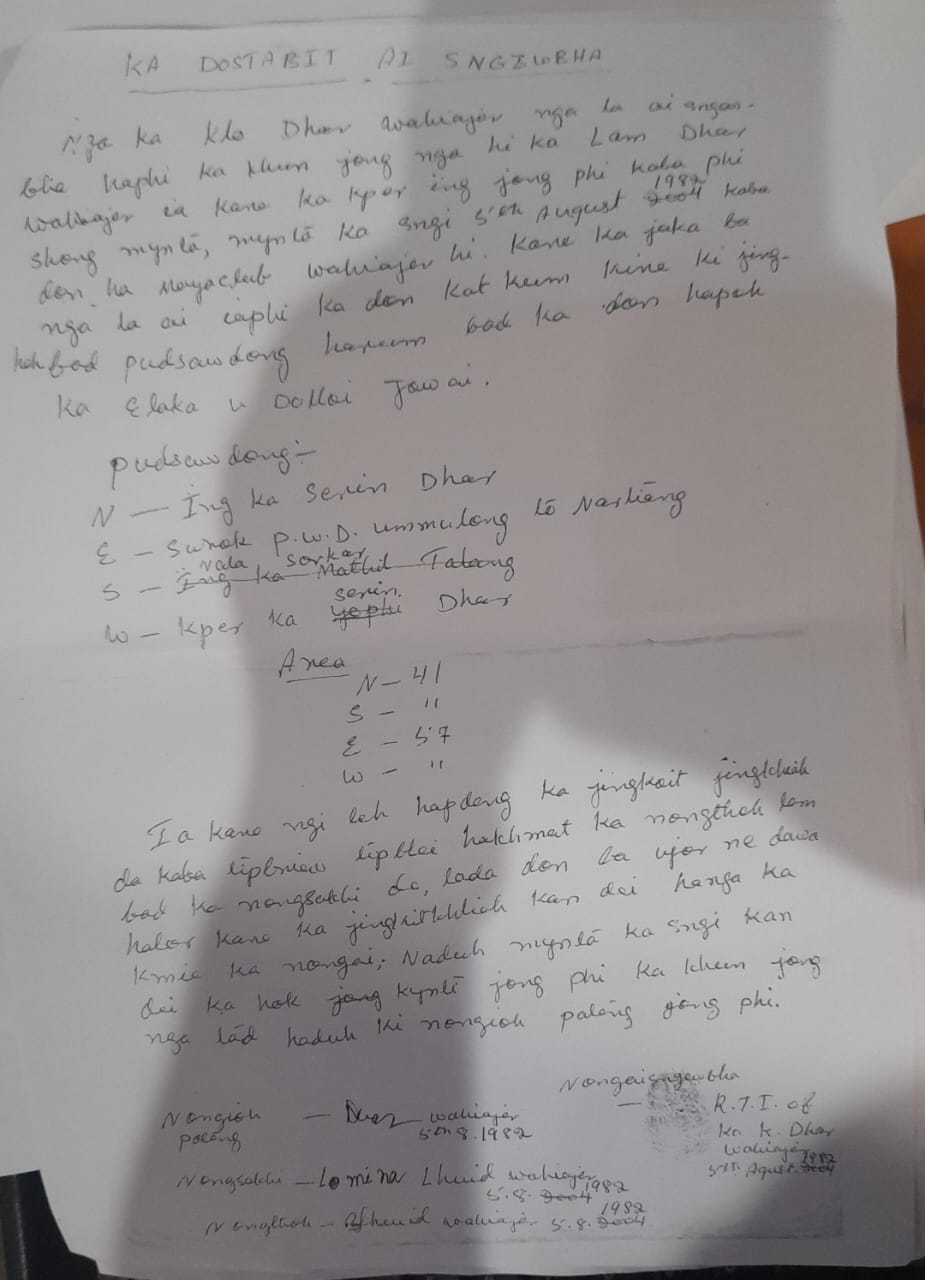 KA DOSTABIT AI SNGEWBHA
Nga ka Klo Dhar wahiajer nga la ai sngew-
bha haphi ka khun jong nga hi ka Lam Dhar
wahiajer ia kane ka kper ing jong phi kaba phi
shong mynta, mynta ka sngi 5th August 2004 1982 kaba
don ha Moyaclub wahiajer hi. Kane ka jaka ba
nga la ai iaphi ka don kat kum kine ki jing-
heh bad pudsawdong harum bad ka don hapoh
Ka Elaka u Dolloi Jowai.
pudsawdong:-
N — Ing ka Serin Dhar
E - Surok P.W.D. ummulong to Nartiang
Nala sorkar
S - Ing ka Mathil Talang
serin.
W - Kper ka Yephi Dhar
Area
N - 41
S - "
E - 57
W - "
Ia kane ngi leh hapdeng ka jingkoit jingkhiah
da kaba tipbriew tipblei hakhmat ka nongthoh lem
bad ka nongsakhi de, lada don ba ujor ne dawa
halor kane ka jingkitkhlieh kan dei hanga ka
kmie ka nongai; Naduh mynta ka sngi kan
dei ka hok jong kynti jong phi ka khun jong
nga lad haduh ki nongioh pateng jong phi.
Nongaisngewbha
Nongioh pateng — Dhar wahiajer
5th 8. 1982
R.T.I. of
Ka K. Dhar
wahiajer
5th Agust. 2004 1982
Nongsakhi - Lomina Lhuid wahiajer
5.8. 2004 1982
Nongthoh - wahiajer 5.8. 2004 1982